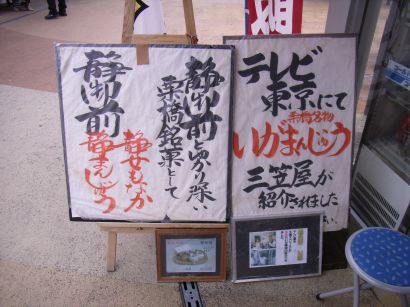 静御前とゆかり深い
栗橋銘菓として
静御前
静女もなか
静まんじゅう
テレビ
東京にて
栗橋名物
いがまんじゅう
三笠屋が
紹介されました